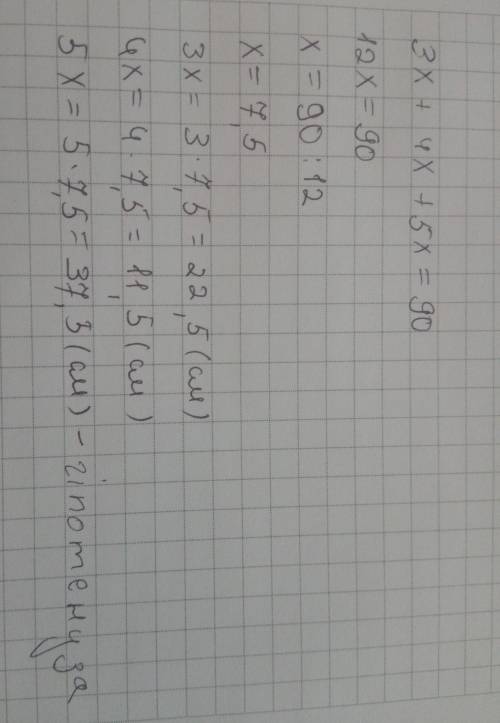 3x + 4x + 5x = 90
12x = 90
x = 90 : 12
x = 7,5
3x = 3 · 7,5 = 22,5 (см)
4x = 4 · 7,5 = 11,5 (см)
5x = 5 · 7,5 = 37,3 (см) - гіпотенуза